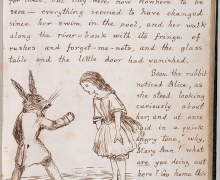 for him, but they were now nowhere to be
seen — everything seemed to have changed
since her swim in the pool, and her walk
along the river-bank with its fringe of
rushes and forget-me-nots, and the glass
table and the little door had vanished.
Soon the rabbit
noticed Alice, as
she stood looking
curiously about
her, and at once
said in a quick
angry tone, "why,
Mary Ann! what
are you doing out
here? Go home this